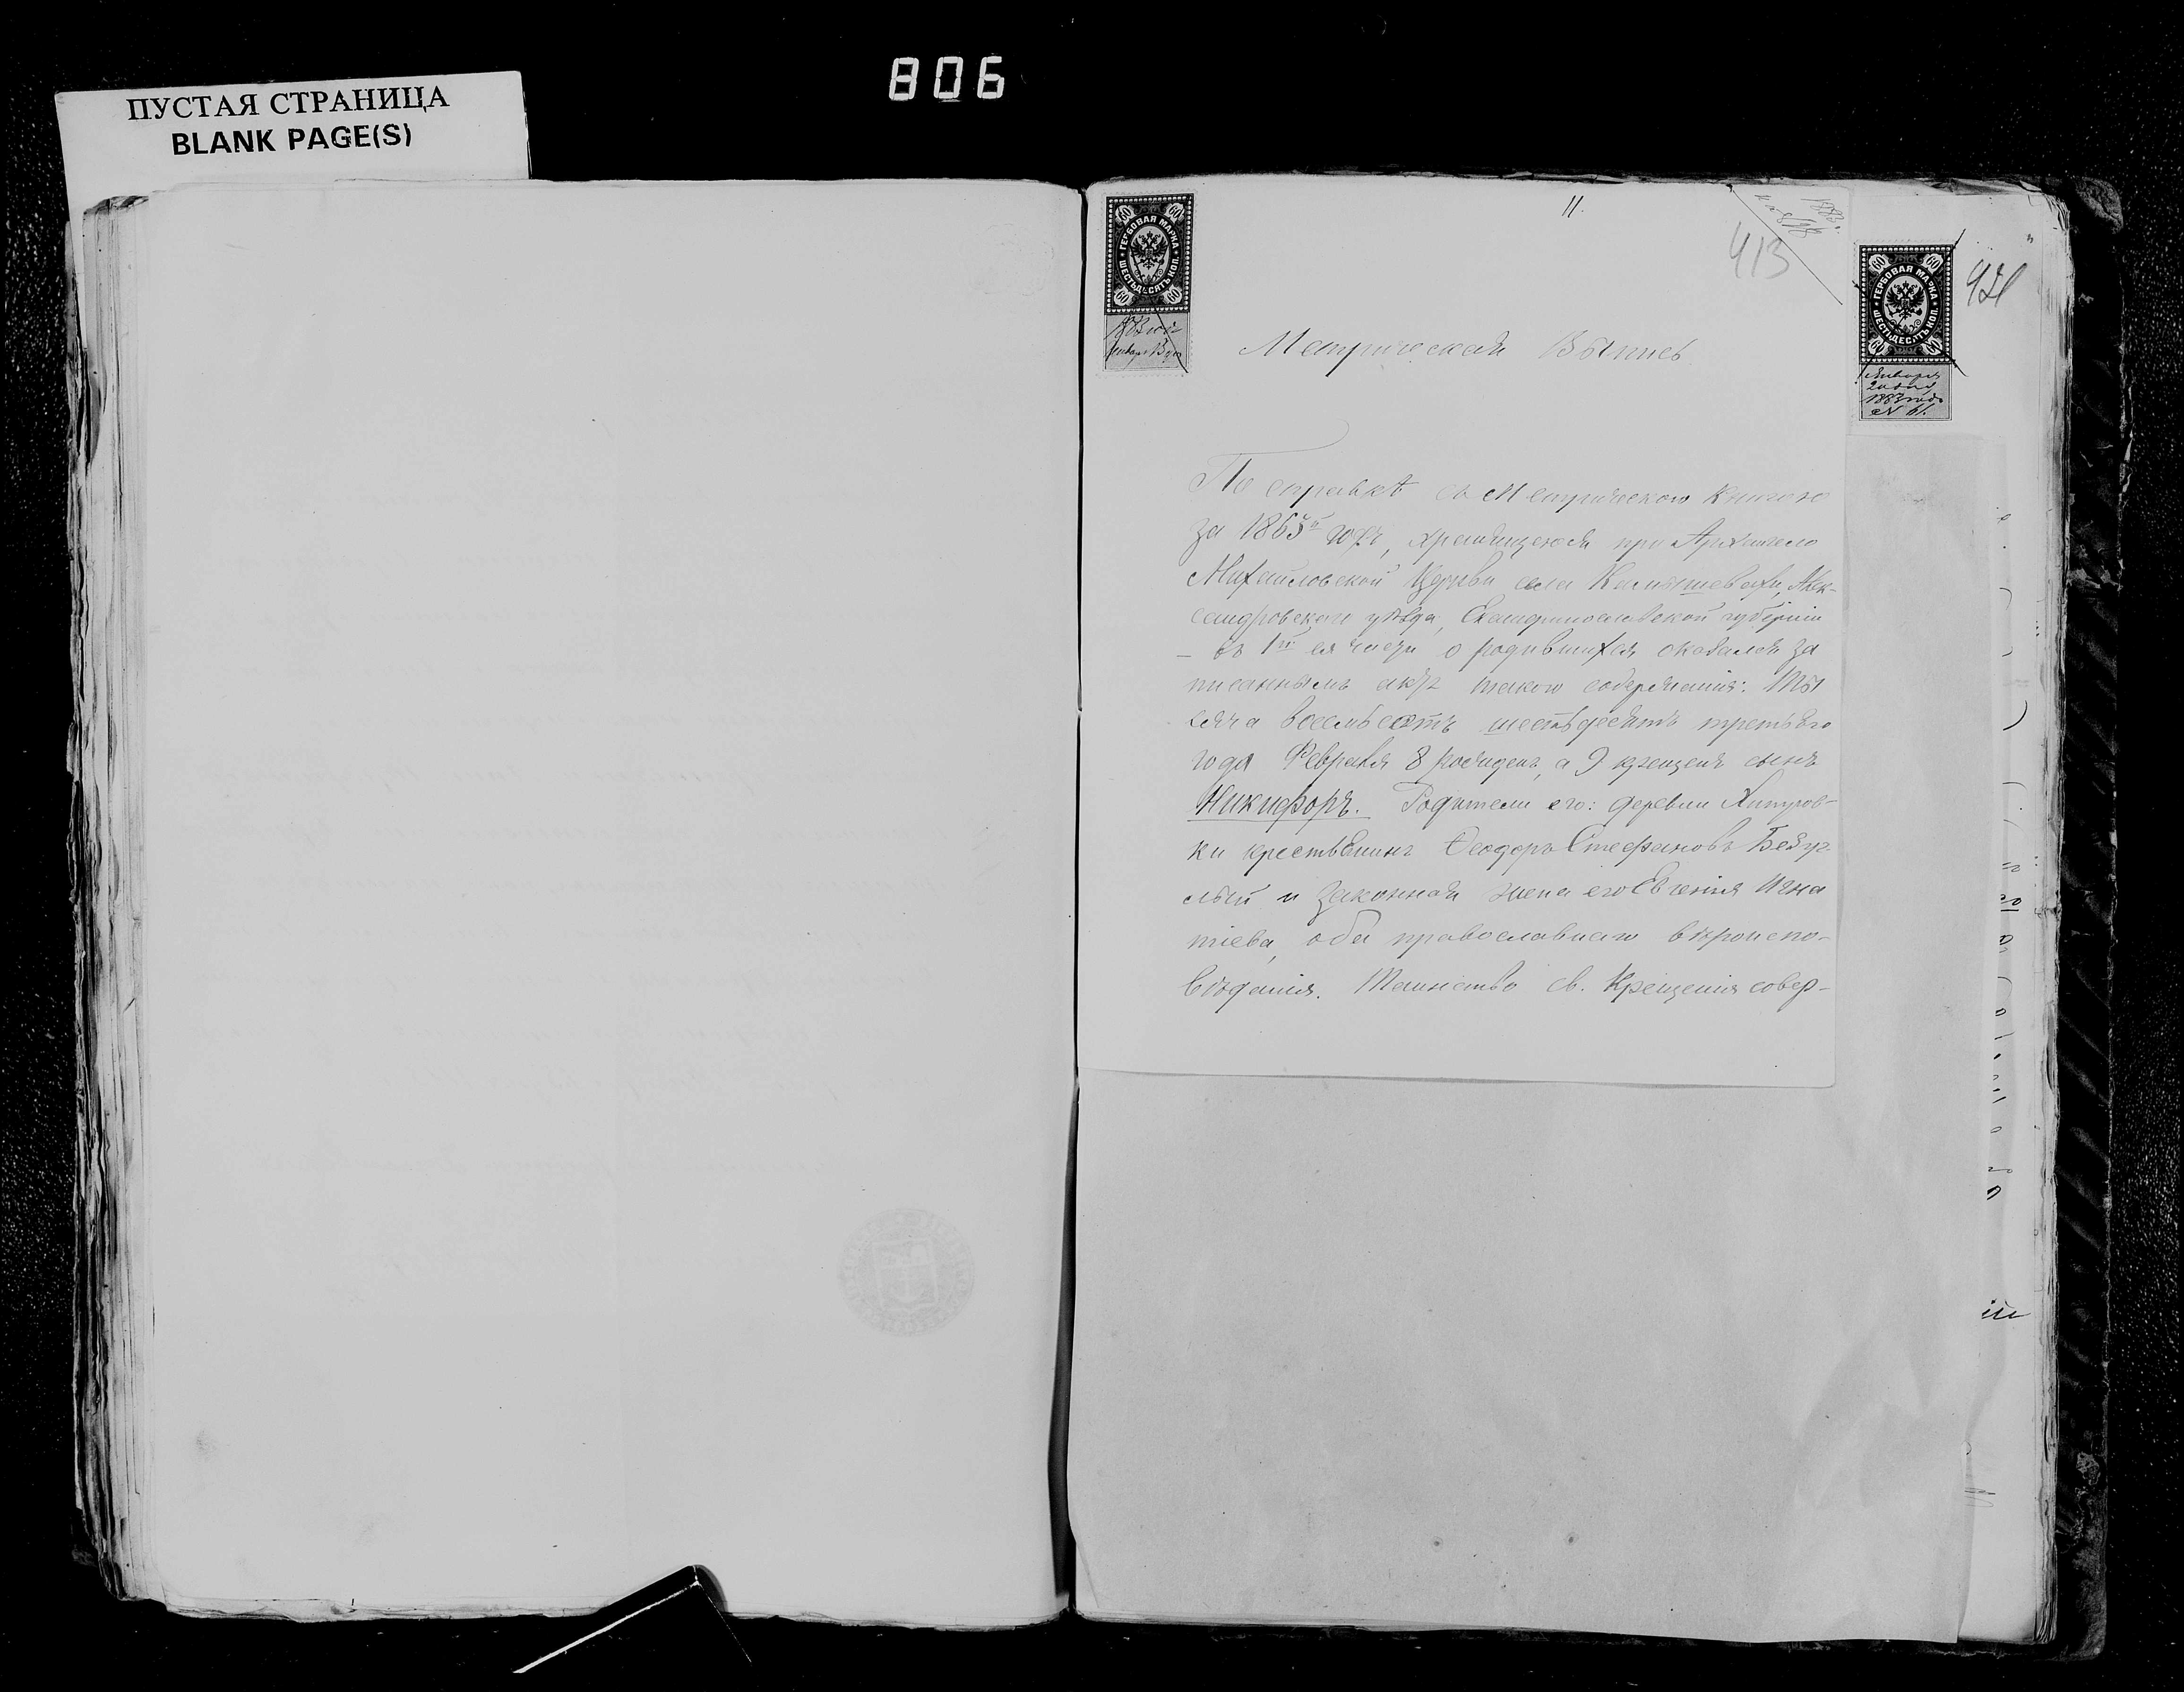 806
ПУСТАЯ СТРАНИЦА
BLANK PAGE(S)
11.
1883
413
421
60 60
ГЕРБОВАЯ МАРКА
ШЕСТЬДЕСЯТЪ КОП.
60 60
1883 года
Января 13 дня
60 60
ГЕРБОВАЯ МАРКА
ШЕСТЬДЕСЯТЪ КОП.
60 60
Января
20 дня
1883 года
№ 61.
Метрическая Выпись
По справкѣ съ Метрическою Книгою
за 1863й годъ, хранящеюся при Архангело
Михайловской Церкви села Камышевахи, Алек-
сандровскаго уѣзда, Екатеринославской губерніи
– въ 1й ея части о родившихся оказался за
писаннымъ актъ такого содержанія: Ты
сяча восемьсотъ шестьдесятъ третьяго
года Февраля 8 рожденъ, а 9 крещенъ сынъ
Никифоръ. Родители его: деревни Хитров-
ки крестьянинъ Ѳеодоръ Стефановъ Безуг-
лый и законная жена его Евгенія Игна
тіева, оба православнаго вѣроиспо-
вѣданія. Таинство св. Крещенія совер-